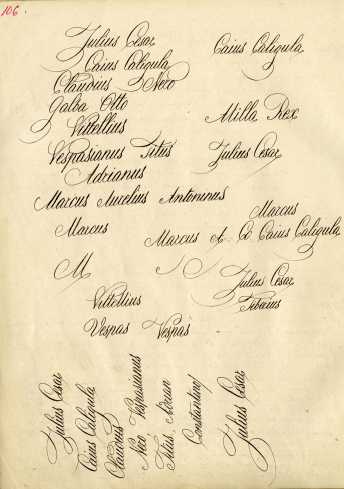 106.
Julius Cesar
Caius Caligula
Caius Caligula
Claudius Nero
Galba Otto
Vittellius
Milla Rex
Vespasianus Titus
Julius Cesar
Adrianus
Marcus Aurelius Antoninus
Marcus
Marcus
Marcus A. Caius Caligula
M
Julius Cesar
Vittellius
Tiberius
Vespas Vespas
Julius Cesar
Caius Caligula
Claudius
Nero Vespasianus
Titus. Adrian
Constantinus
Julius Cesar